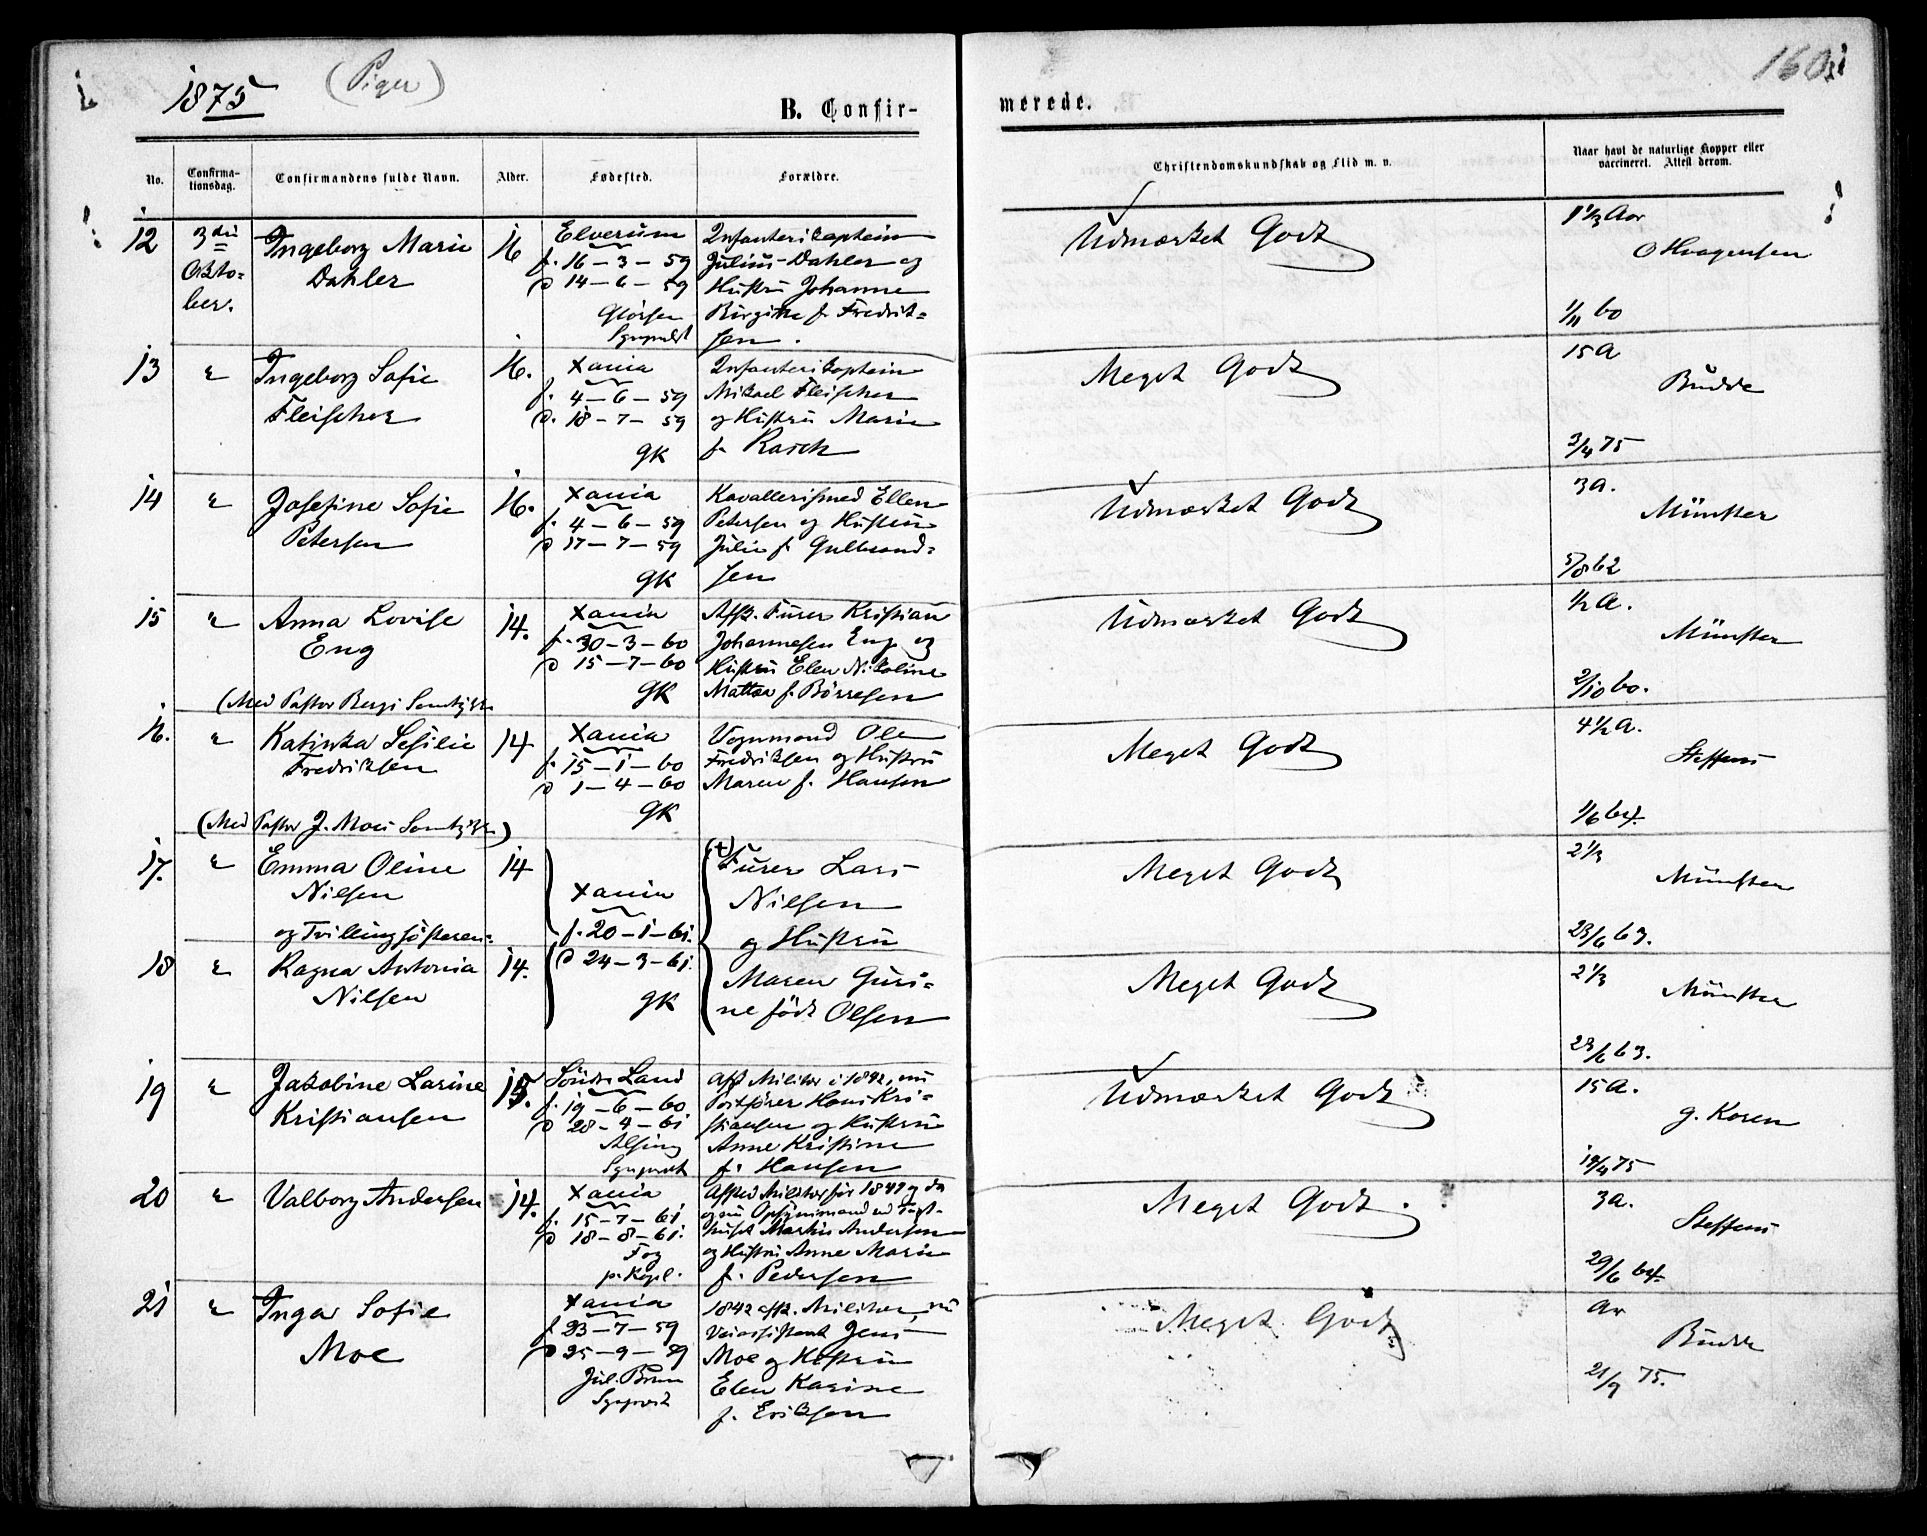 1875 (Piger)
160
B. Confir-
merede.
No.
Confirma-
tionsdag.
Confirmandens fulde Navn.
Alder.
Fødested.
Forældre.
Christendomskundskab og Flid m. v.
Naar havt de naturlige Kopper eller
vaccineret. Attest derom.
12
3die
Okto-
ber.
Ingeborg Marie
Dahler
16
Elverum
f. 16-3-59
d 14-6-59
Sgnprst
Infanterikaptein
Julius Dahler og
Hustru Johanne
Birgitte f. Fredrik-
sen.
Udmærket Godt
1 1/2 Aar
O Haagensen
1/11 60
13
"
Ingeborg Sofie
Fleischer
16.
Xania
f. 4-6-59
d. 18-7-59
GK
Infanterikaptein
Mikael Fleischer
og Hustru Marie
f. Rasch
Meget Godt
15 A
Budde
3/4 75
14
"
Josefine Sofie
Petersen
16.
Xania
f. 4-6-59
d 17-7-59
GK
Kavallerismed Ellen
Petersen og Hustru
Julie f. Gulbrand-
sen
Udmærket Godt
3 a.
Münster
5/8 62
15
"
Anna Lovise
Eng
(Med Pastor Bergs Samtykke
14.
Xania
f. 30-3-60
d 15-7-60
GK
Afsk. Furer Kristian
Johannesen Eng og
Hustru Elen Nikoline
Mattea f. Börresen
Udmærket Godt
1/2 A.
Münster
2/10 60.
16.
"
Katinka Sesilie
Fredriksen
(Med Pastor J. Moes Samtykke)
14
Xania
f. 15-1-60
d 1-4-60
GK
Vognmand Ole
Fredriksen og Hustru
Maren f. Hansen
Meget Godt
4 1/2 A.
Steffens
1/6 64.
17.
"
Emma Oline
Nilsen
og Tvillingsösteren:
14
Xania
f. 20-1-61.
(+)
Furer Lars
Nilsen
og Hustru
Meget Godt
2 1/2
Münster
23/6 63.
18
"
Ragna Antonia
Nilsen
14.
d 24-3-61.
GK
Maren Guri-
ne födt Olsen
Meget Godt
2 1/2
Münster
23/6 63.
19
"
Jakobine Larine
Kristiansen
15.
Söndre Land
f. 19-6-60
d 28-4-61
Alsing
Sgnprest
Afsk Militær i 1842, nu
Portförer Hans Kri-
stiansen og Hustru
Anne Kristine
f. Hansen
Udmærket Godt
15 A.
G. Koren
19/4 75
20
"
Valborg Andersen
14.
Xania
f. 15-7-61.
d 18-8-61.
Fog
p. Kapl.
Afsked Militær för 1842 og da
og nu Opsynsmand ved Tugt-
huset Martin Andersen
og Hustru Anne Marie
f. Pedersen
Meget Godt.
3 a.
Steffens
29/6 64.
21
"
Inga Sofie
Moe
Xania
f 23-7-59
d 25-9-59
Jul. Bruun
Sgnprest
1842 afsk. Militær, nu
Veiassistent Jens
Moe og Hustru
Elen Karine
f. Eriksen
Meget Godt
Ar
Budde
21/9 75.